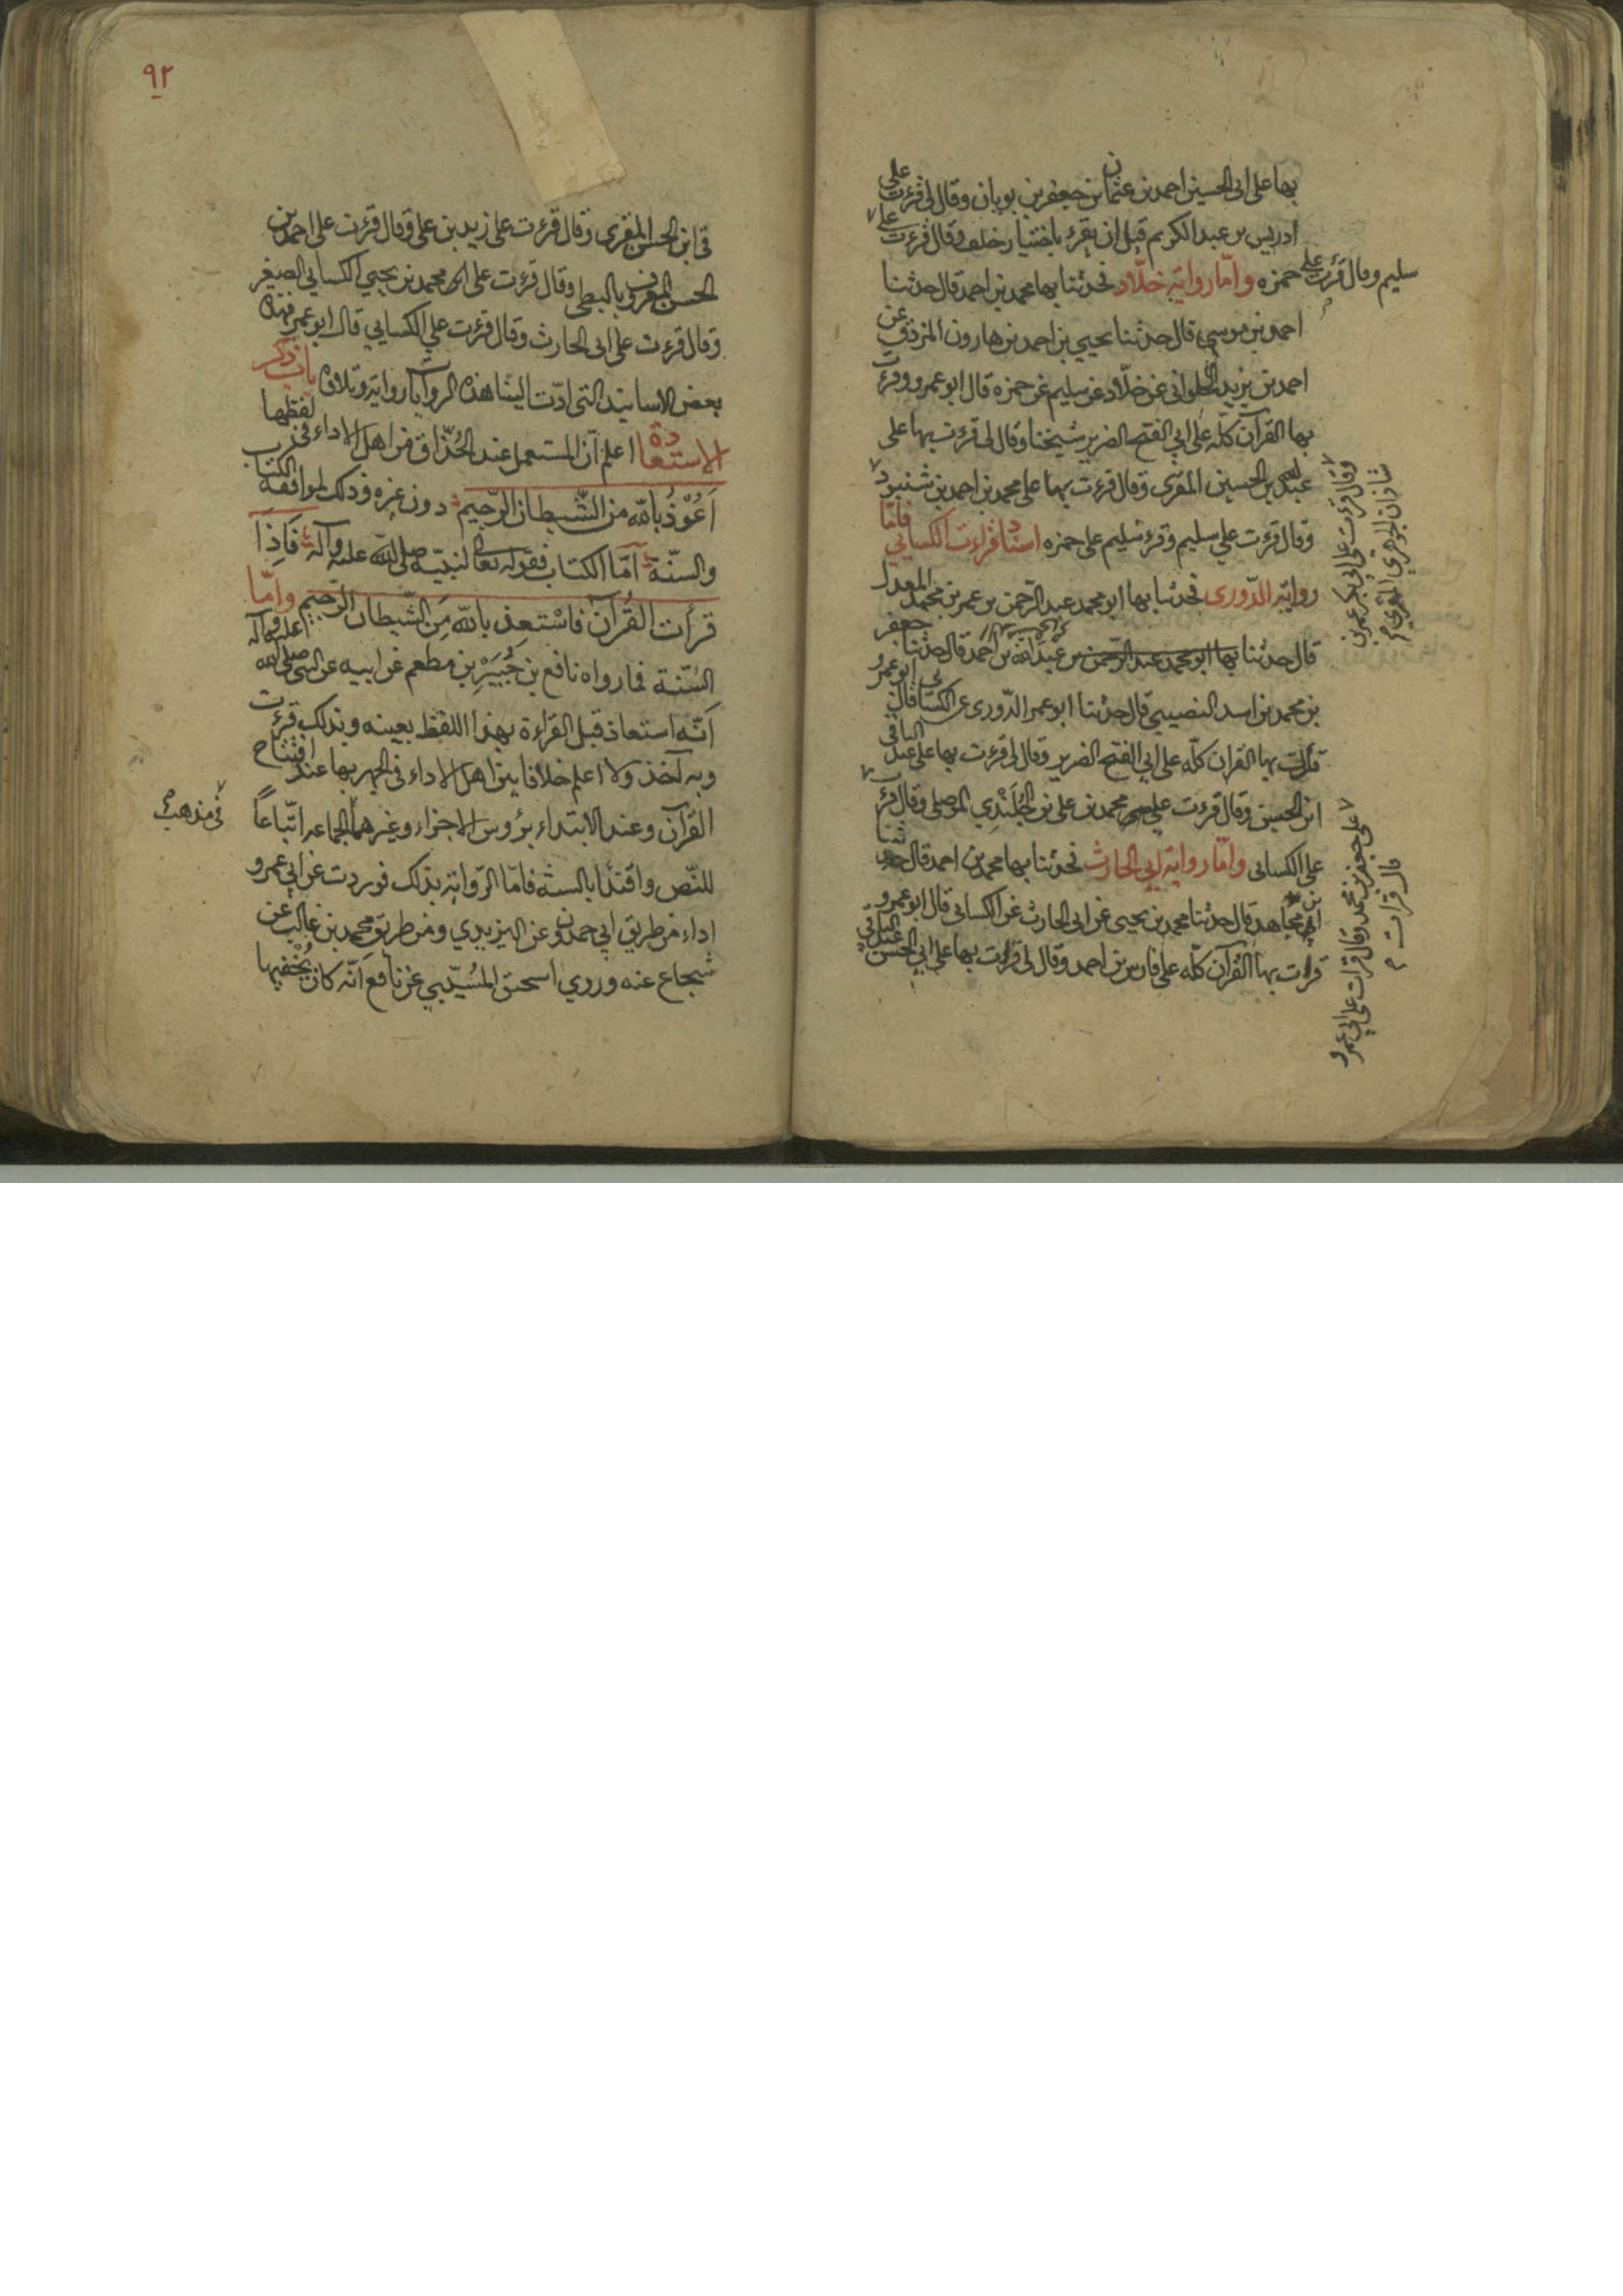 بها على ابى الحسين احمد بن عثمان بن جعفر بن بويان وقال لى قرءت على
ادريس بن عبد الكريم قبل ان يقرء باختيار خلف وقال قرءت على
سليم وقال قرءت على حمزه واما رواية خلّاد فحدثنا بها محمد بن احمد قال حدثنا
احمد بن موسى قال حدثنا يحيي بن احمد بن هارون المزوق عن
احمد بن يزيد الحلوانى عن خلّاد عن سليم عن حمزه قال ابو عمرو وقرءت
بها القرآن كلّه على ابي الفتح الضرير شيخنا وقال لى قرءت بها على
عبد الله بن الحسين المقرى وقال قرءت بها على محمد بن احمد بن شنبوذ
وقال قرءت على ابي بكر محمد بن
شاذان الجوهري المقري
وقال قرءت على سليم وقرء سليم على حمزه اسناد قراءت الكسائي فامّا
رواية الدّورى فحدثنا بها ابو محمد عبد الرحمن بن عمر بن محمد المعدل
قال حدثنا بها ابو محمد عبد الرحمن بن عبد الله بن احمد قال حدثنا جعفر
بن محمد بن اسد النصيبي قال حدثنا ابو عمر الدّورى عن الكسائى قال ابو عمرو
قرأت بها القران كلّه على ابي الفتح الضرير وقال لى قرءت بها على عبد الباقى
ابن الحسين وقال قرءت على محمد بن على بن الجُلَنْدي الموصلى وقال قرءت
على جعفر بن محمد وقال قرات على ابي عمرو
قال قرات
على الكسائى وامّا رواية ابي الحارث فحدثنا بها محمد بن احمد قال حدثنا
ابن مجاهد قال حدثنا محمد بن يحيى عن ابى الحارث عن الكسائى قال ابو عمرو
قرات بها القرآن كلّه على فارس بن احمد وقال لى قرات بها على ابي الحسن عبد الباقي
٩٢
قى ابن الحسن المقرى وقال قرءت على زيد بن على وقال قرءت على احمد بن
الحسن المعروف بالبطى وقال قرءت على محمد بن يحيي الكسايى الصغير
وقال قرءت على ابى الحارث وقال قرءت على الكسايي قال ابو عمرو فهذه
بعض الاسانيد التى ادّت الينا هذه الروايات رواية وتلاوة باب ذكر
الاستعاذة اعلم انّ المستعمل عند الحُذّاق من اهل الاداء فى لفظها
اَعُوْذُ بِاللّه من الشّيطان الرّحيم دون غيره وذلك لموافقة الكتاب
والسنّة امّا الكتاب فقوله تعالى لنبيّه صلى الله عليه وآله فَاِذَا
قرأت القُرآن فاسْتعِذ بالله مِنَ الشّيطان الرّجيم وامّا
السُنّة فما رواه نافع بن جُبَيَرْ بن مطعم عن ابيه عن النبي صلى الله عليه وآله
اَنّه استعاذ قبل القراءة بهذا اللفظ بعينه وبذلك قرءت
وبه آخذ ولا اعلم خلافا بين اهل الاداء فى الجهر بها عند افتتاح
القرآن وعند الابتداء برؤوس الاجزاء وغيرهما فى مذهب الجماعه اتّباعاً
للنّص واقتدًا بالسنة فامّا الرّواية بذلك فوردت عن ابي عمرو
اداء من طريق ابي حمدون عن اليزيدي ومن طريق محمد بن غالب عن
شجاع عنه وروي اسحق المُسيّبي عن نافع اَنّه كان يُخفيها